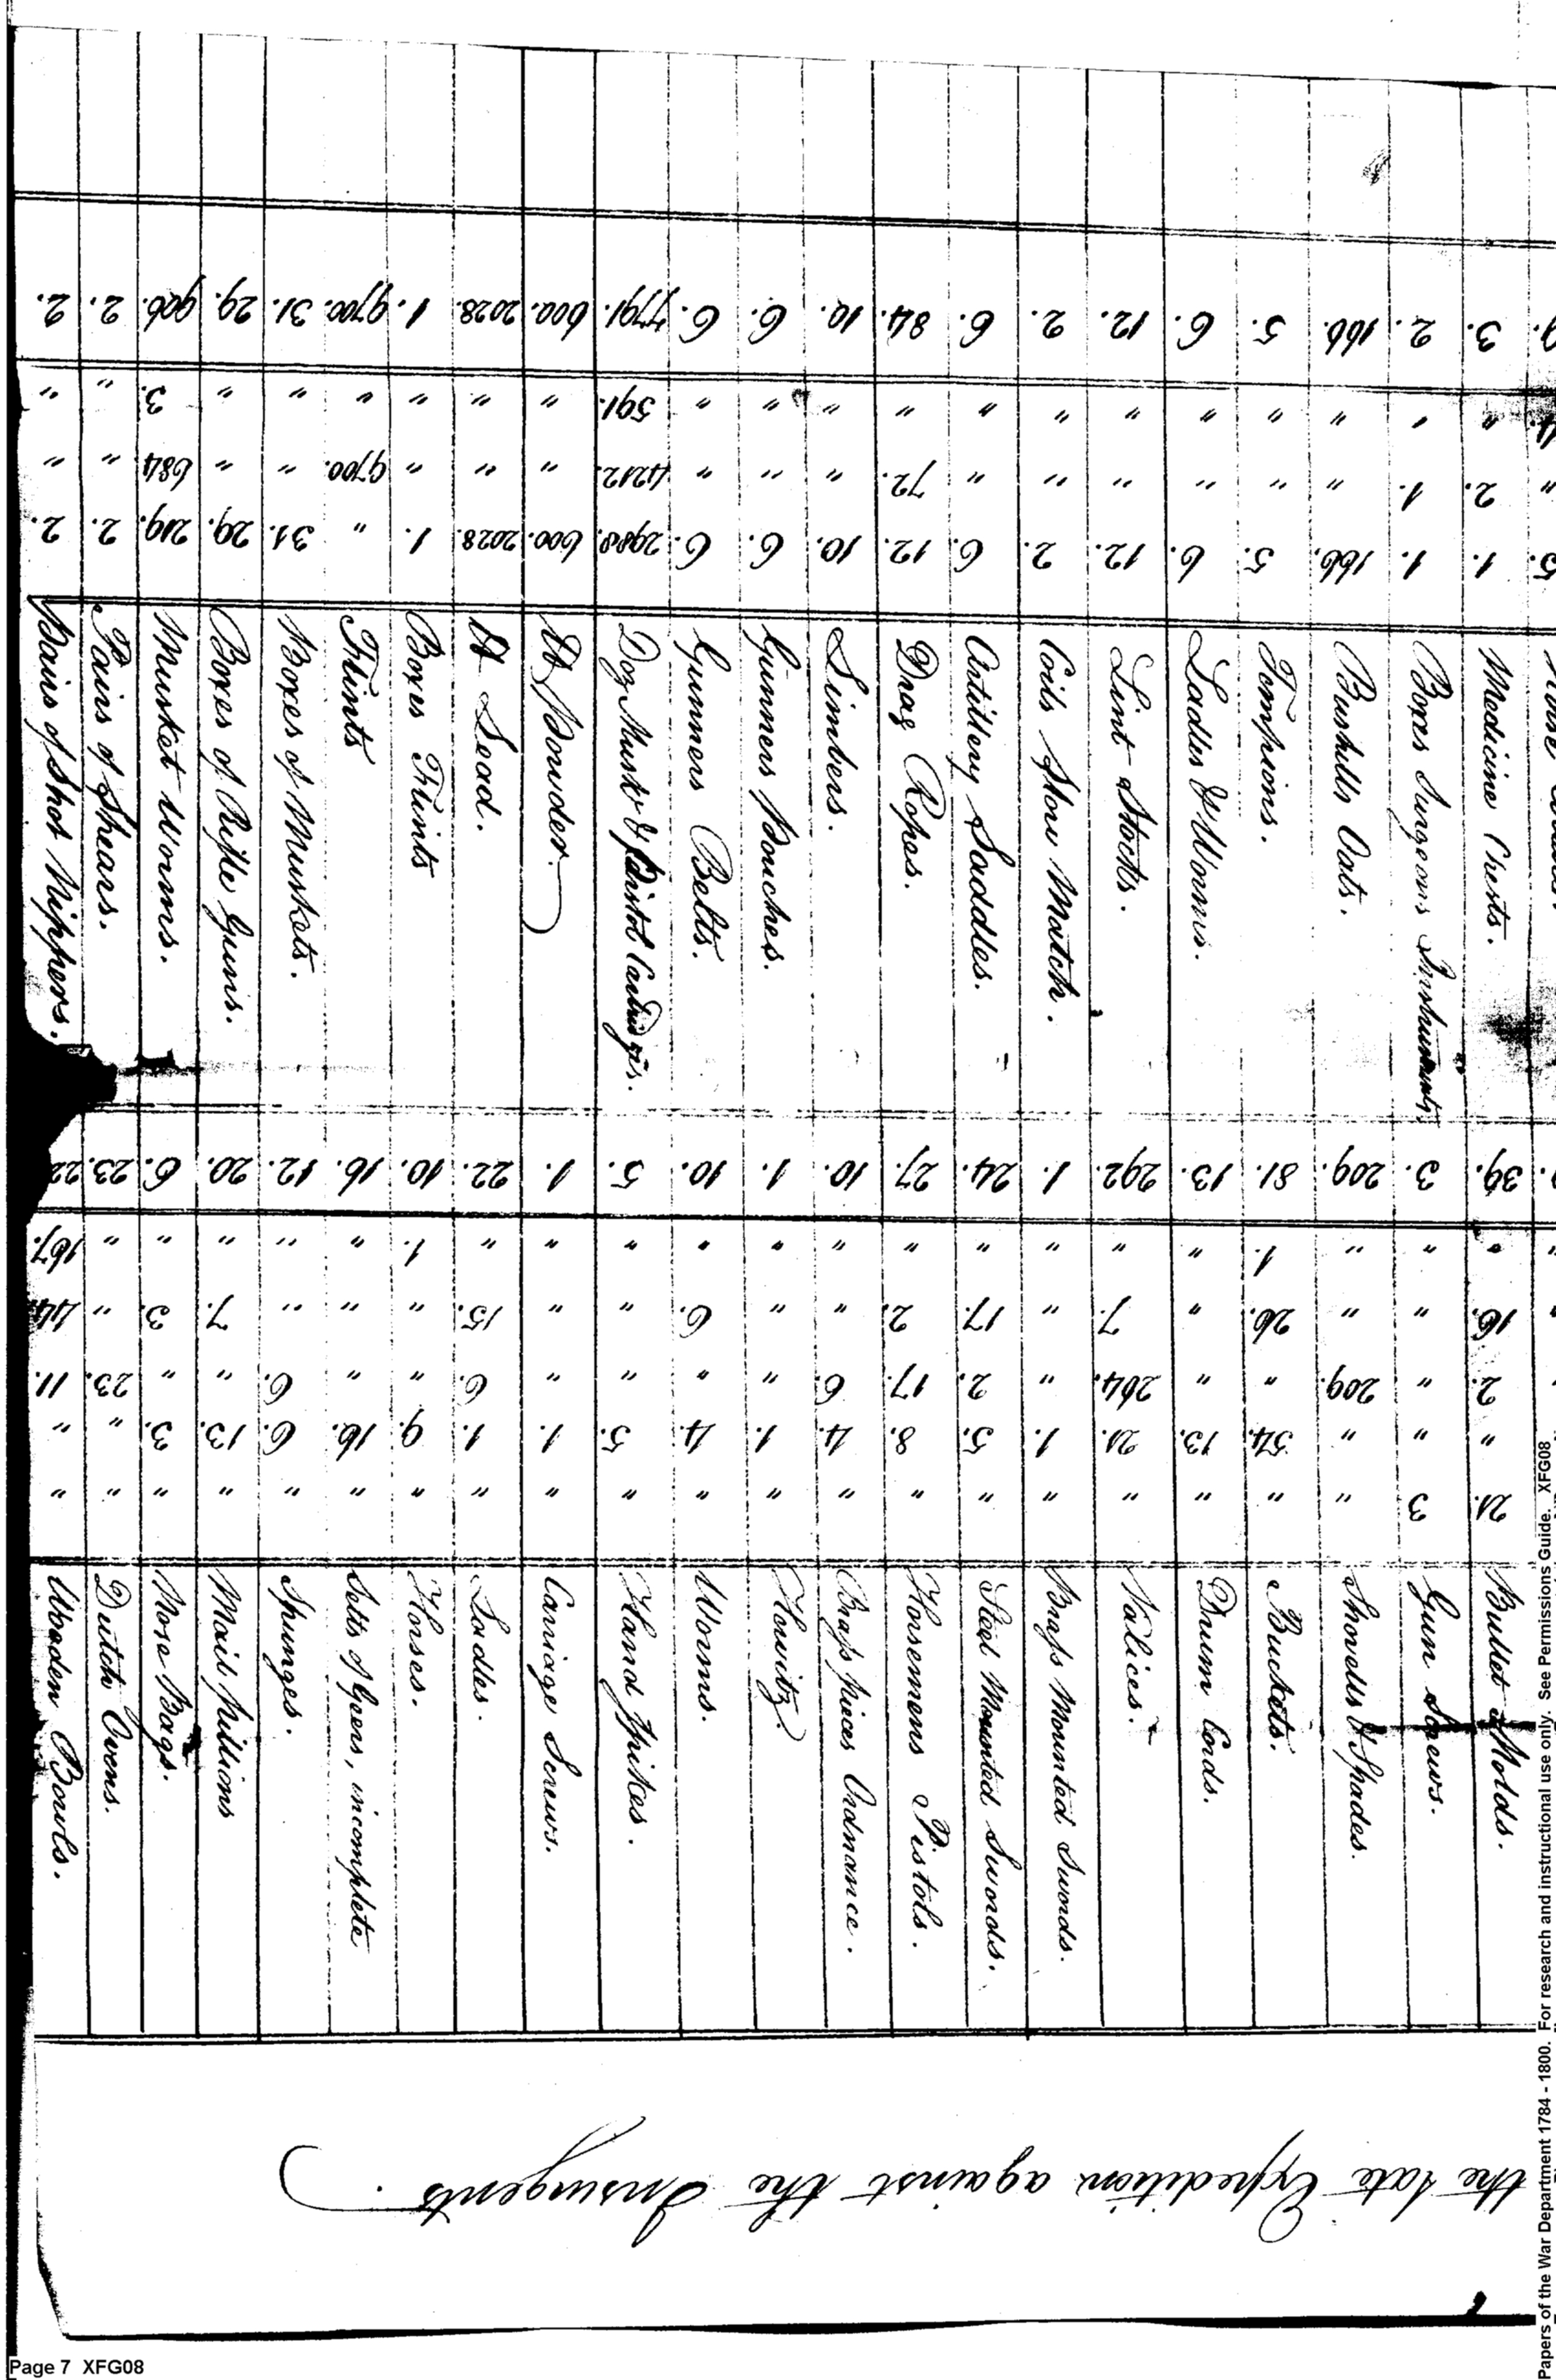 the late Expedition against the Insurgents.
Bullet Molds.
Gun Screws.
Shovells & Spades.
Buckets.
Drum Cords.
Valices.
Brass Mounted Swords.
Steel Mounted Swords.
Horsemens Pistols.
Brass pieces Ordnance.
Howitz.
Worms.
Hand Spikes.
Carriage Screws.
Ladles.
Horses.
Setts of Geers, incomplete
Spunges.
Mail pillions
Nose Bags.
Dutch Ovens.
Wooden Bowls.
21. 3 " " " " " " " " " " " " " " " " " " " "
" " " 54. 13. 21. 1. 5. 8. 4. 1. 4. 5. 1. 1. 9. 16. 6. 13. 3. " "
2. " 209. " " 264. " 2. 17. 6. " " " " 6. " " 6. " " 23. 11.
16. " " 26. " 7. " 17. 2. " " 6. " " 15. " " " 7. 3. " 44.
" " " 1. " " " " " " " " " " " 1. " " " " " 167.
39. 3. 209. 81. 13. 292. 1. 24. 27. 10. 1. 10. 5. 1. 22. 10. 16. 12. 20. 6. 23.
Medicine Chests.
Boxes Surgeons Instruments
Bushells Oats.
Tompions.
Ladles & Worms.
Lint Stocks.
Coils Slow Match.
Artillery Saddles.
Drag Ropes.
Limbers.
Gunners Pouches.
Gunners Belts.
Doz Muskt & Pistol Cartridges.
lb Powder.
lb Lead.
Boxes Flints
Flints
Boxes of Muskets.
Boxes of Rifle Guns.
Musket Worms.
Pairs of Shears.
Pairs of Shot Nippers.
5. 1. 1. 166. 5. 6. 12. 2. 6. 12. 10. 6. 6. 2988. 600. 2028. 1. " 31. 29. 219. 2. 2.
" 2. 1. " " " " " " 72. " " " 4212. " " " 9700. " " 684 " "
4. " " " " " " " " " " " " 591. " " " " " " 3. " "
3. 2. 166. 5. 6. 12. 2. 6. 84. 10. 6. 6. 7791. 600. 2028. 1. 9700. 31. 29. 906. 2. 2.
Papers of the War Department 1784 - 1800. For research and instructional use only. See Permissions Guide. XFG08
Page 7 XFG08